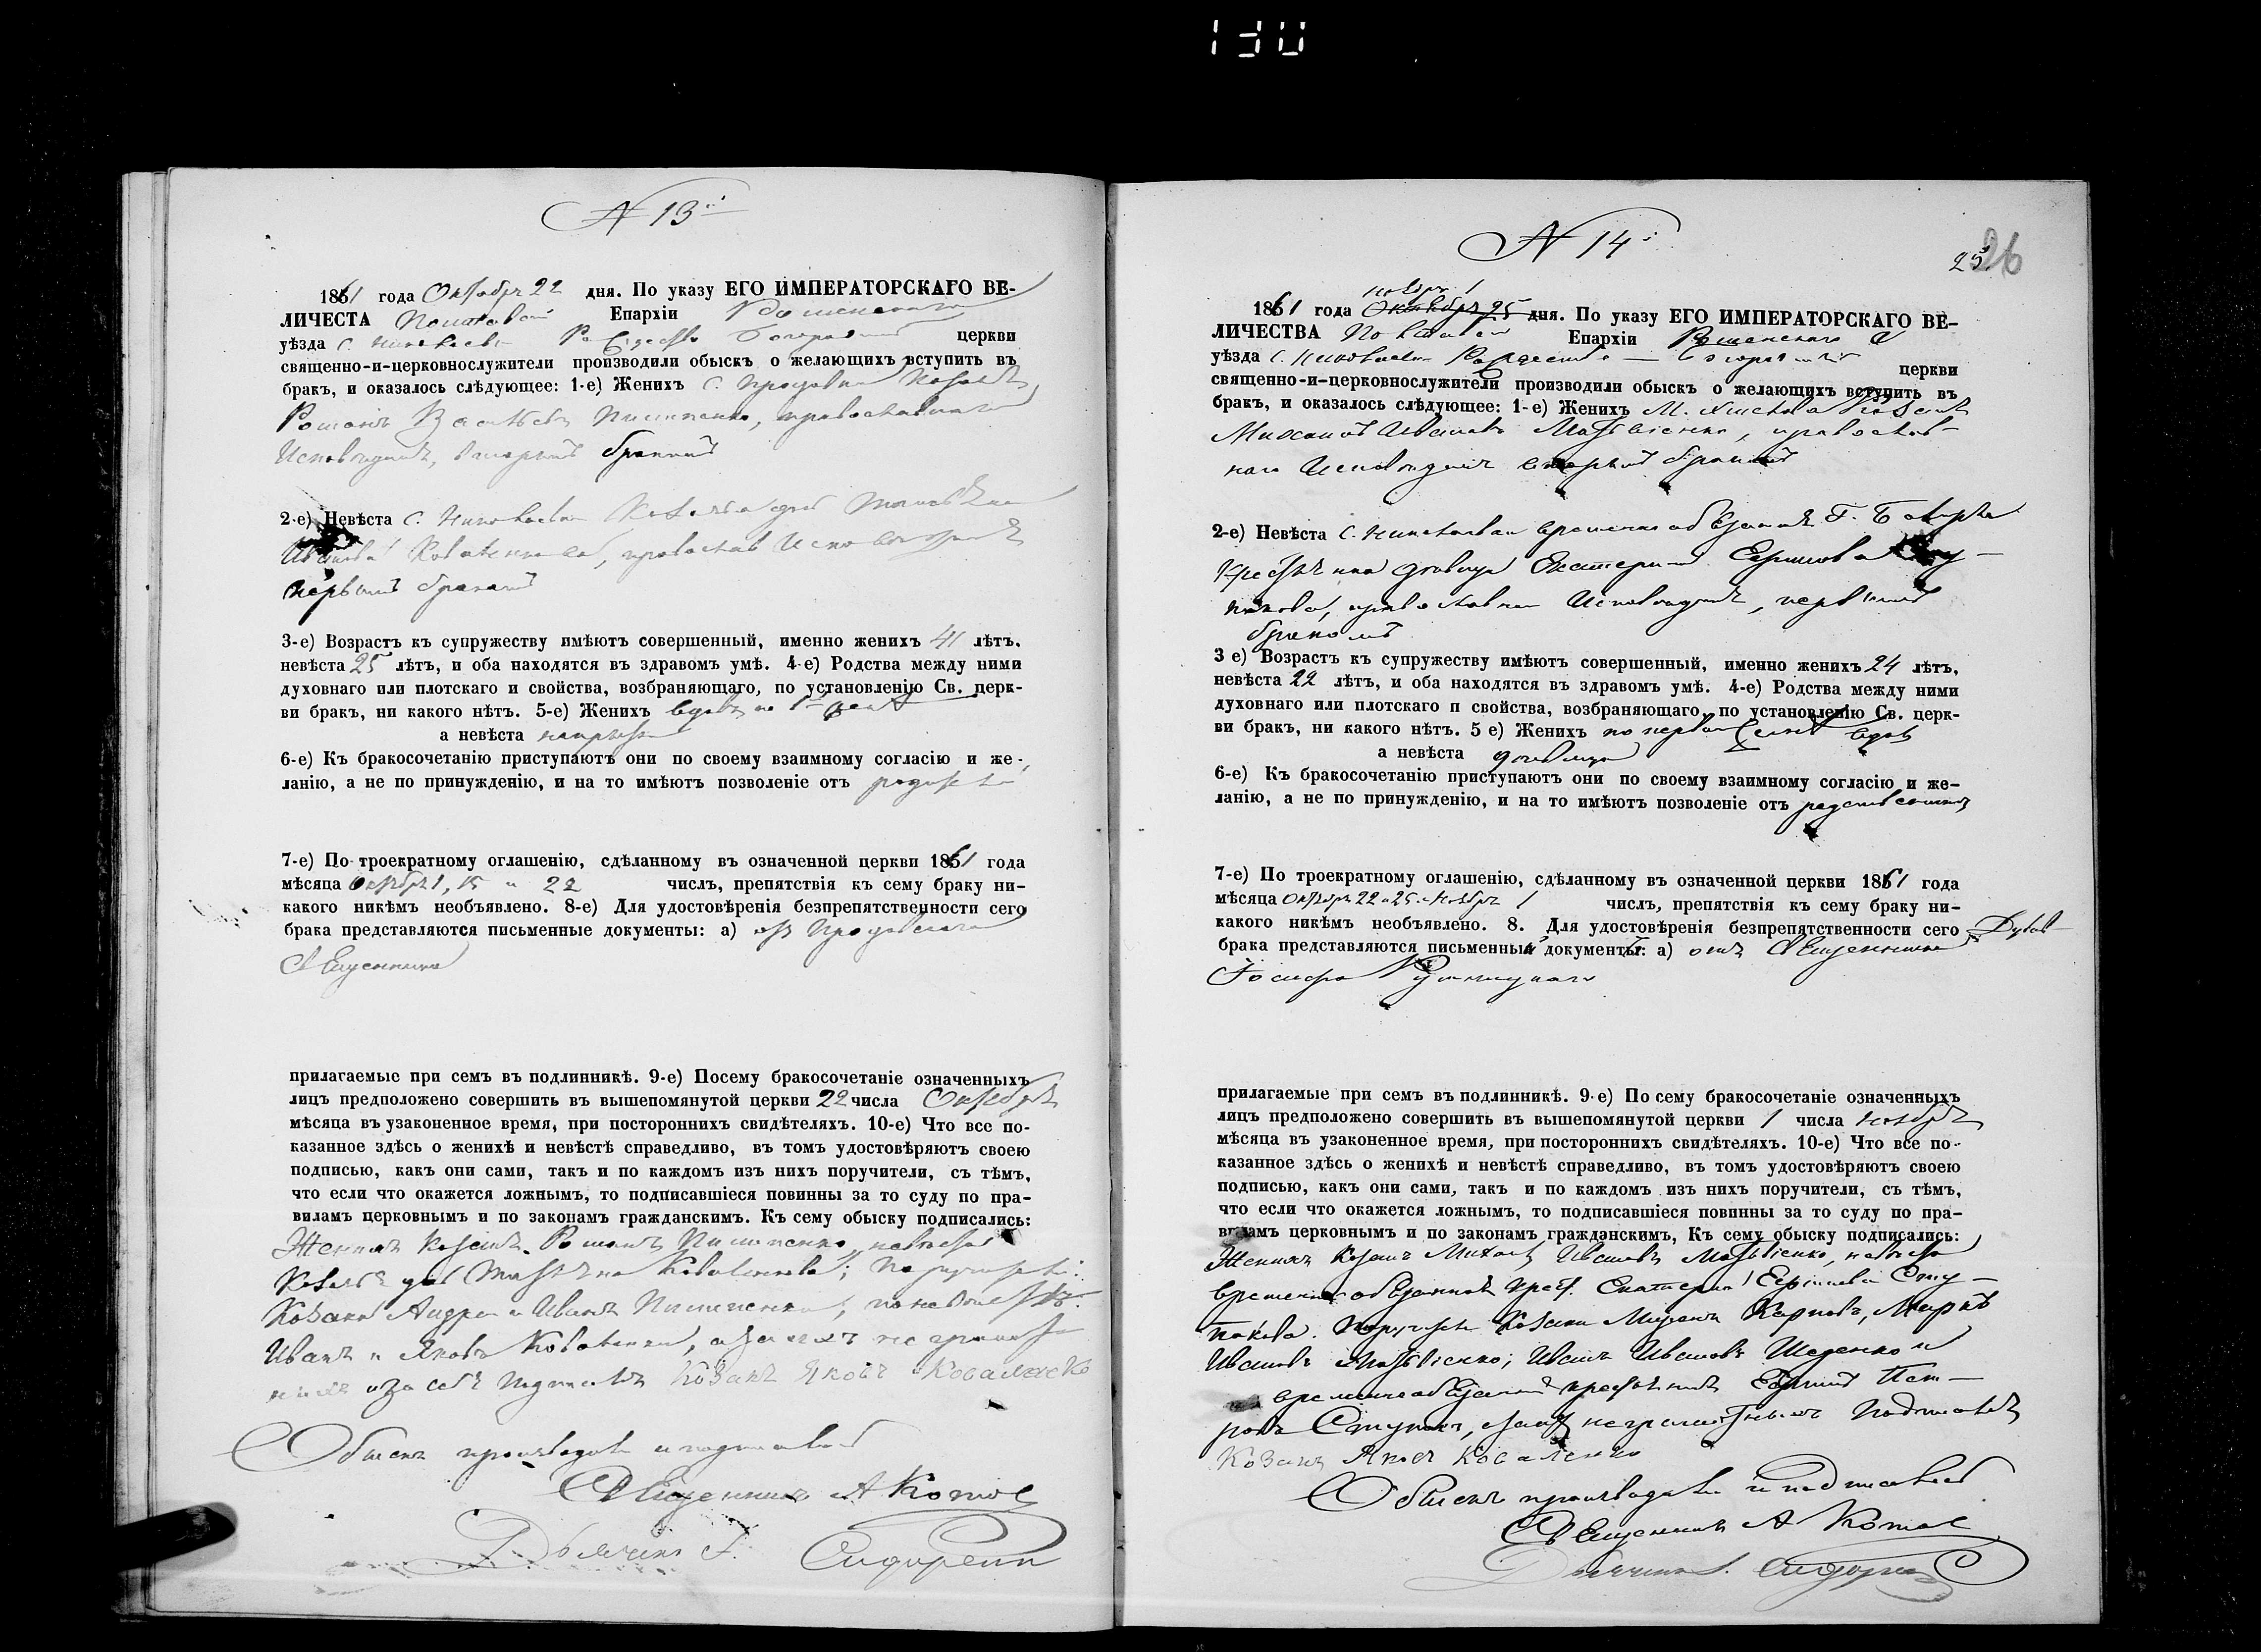 130
N 13й
1861 года Октября 22 дня. По указу ЕГО ИМПЕРАТОРСКАГО ВЕ-
ЛИЧЕСТА Полтавской Епархіи Роменскаго
уѣзда с. Николаевки Рождество Богородичной церкви
священно-и-церковнослужители производили обыскъ о желающихъ вступить въ
бракъ, и оказалось слѣдующее: 1-е) Женихъ С. Казакъ,
Романъ Васильевъ Пилипенко, православнаго
Исповѣданія, вторымъ бракомъ
2-е) Невѣста С. Николаевки
Иванова Коваленкова, православ Исповѣданія
первымъ бракомъ
3-е) Возрастъ къ супружеству имѣютъ совершенный, именно женихъ 41 лѣтъ.
невѣста 25 лѣтъ, и оба находятся въ здравомъ умѣ. 4-е) Родства между ними
духовнаго или плотскаго и свойства, возбраняющаго, по установленію Св. церк-
ви бракъ, ни какого нѣтъ. 5-е) Женихъ вдовъ по 1й женѣ
а невѣста
6-е) Къ бракосочетанію приступаютъ они по своему взаимному согласію и же-
ланію, а не по принужденію, и на то имѣютъ позволеніе отъ
7-е) По троекратному оглашенію, сдѣланному въ означенной церкви 1861 года
мѣсяца Октября 1, 15 и 22 числъ, препятствія къ сему браку ни-
какого никѣмъ необъявлено. 8-е) Для удостовѣренія безпрепятственности сего
брака представляются письменные документы: а) отъ
Священника
прилагаемые при семъ въ подлинникѣ. 9-е) Посему бракосочетаніе означенныхъ
лицъ предположено совершить въ вышепомянутой церкви 22 числа Октября
мѣсяца въ узаконенное время, при постороннихъ свидѣтеляхъ. 10-е) Что все по-
казанное здѣсь о женихѣ и невѣстѣ справедливо, въ томъ удостовѣряютъ своею
подписью, какъ они сами, такъ и по каждомъ изъ нихъ поручители, съ тѣмъ,
что если что окажется ложнымъ, то подписавшіеся повинны за то суду по пра-
виламъ церковнымъ и по законамъ гражданскимъ. Къ сему обыску подписались:
Женихъ Казакъ Романъ Пилипенко, невѣста
Коваленкова; Поручители:
Козаки Андрей и Иванъ Пилипенки, по невѣстѣ
Иванъ и Яковъ Коваленки, а за ихъ неграмот-
ныхъ и за себя подписалъ Козакъ Яковъ Коваленко
Обыскъ производили и подписали
Священникъ А Котов
Дьячекъ Сидоренко
N 14й
25 26
Ноября 1
1861 года Октября 25 дня. По указу ЕГО ИМПЕРАТОРСКАГО ВЕ-
ЛИЧЕСТВА Полтавской Епархіи Роменскаго
уѣзда с. Николаевки Рождество-Богородичной церкви
священно-и-церковнослужители производили обыскъ о желающихъ вступить въ
бракъ, и оказалось слѣдующее: 1-е) Женихъ М. Козакъ
Михаилъ Ивановъ Матвіенко, православ-
наго Исповѣданія вторымъ бракомъ
2-е) Невѣста С. Николаевки временно обязанная Г.
Крестьянка дѣвица Екатерина Ефимова Сту-
пакова, православнаго Исповѣданія, первымъ
бракомъ
3 е) Возрастъ къ супружеству имѣютъ совершенный, именно женихъ 24 лѣтъ,
невѣста 22 лѣтъ, и оба находятся въ здравомъ умѣ. 4-е) Родства между ними
духовнаго или плотскаго п свойства, возбраняющаго, по установленію Св. церк-
ви бракъ, ни какого нѣтъ. 5 е) Женихъ по первой женѣ вдовъ
а невѣста дѣвица
6-е) Къ бракосочетанію приступаютъ они по своему взаимному согласію и же-
ланію, а не по принужденію, и на то имѣютъ позволеніе отъ родственниковъ
7-е) По троекратному оглашенію, сдѣланному въ означенной церкви 1861 года
мѣсяца Октября 22 и 25 и Ноября 1 числъ, препятствія къ сему браку ни-
какого никѣмъ необъявлено. 8. Для удостовѣренія безпрепятственности сего
брака представляются письменный документъ: а) отъ Священника
Іосифа
прилагаемые при семъ въ подлинникѣ. 9-е) По сему бракосочетаніе означенныхъ
лицъ предположено совершить въ вышепомянутой церкви 1 числа Ноября
мѣсяца въ узаконенное время, при постороннихъ свидѣтеляхъ. 10-е) Что все по-
казанное здѣсь о женихѣ и невѣстѣ справедливо, въ томъ удостовѣряютъ своею
подписью, какъ они сами, такъ и по каждомъ изъ нихъ поручители, съ тѣмъ,
что если что окажется ложнымъ, то подписавшіеся повинны за то суду по пра-
виламъ церковнымъ и по законамъ гражданскимъ, Къ сему обыску подписались:
Женихъ Козакъ Михаилъ Ивановъ Матвіенко, невѣста
временно обязанная крест. Екатерина Ефимова Сту-
пакова. Поручители Козаки Карповъ, Маркъ
Ивановъ Матвіенко; Иванъ Ивановъ Шеденко и
временнообязанный крестьянинъ Ефимъ Пет-
ровъ Ступакъ, а за неграмотныхъ Подписалъ
Козакъ Яковъ Коваленко
Обыскъ производили и подписали
Священникъ А Котов
Дьячекъ Сидоренко